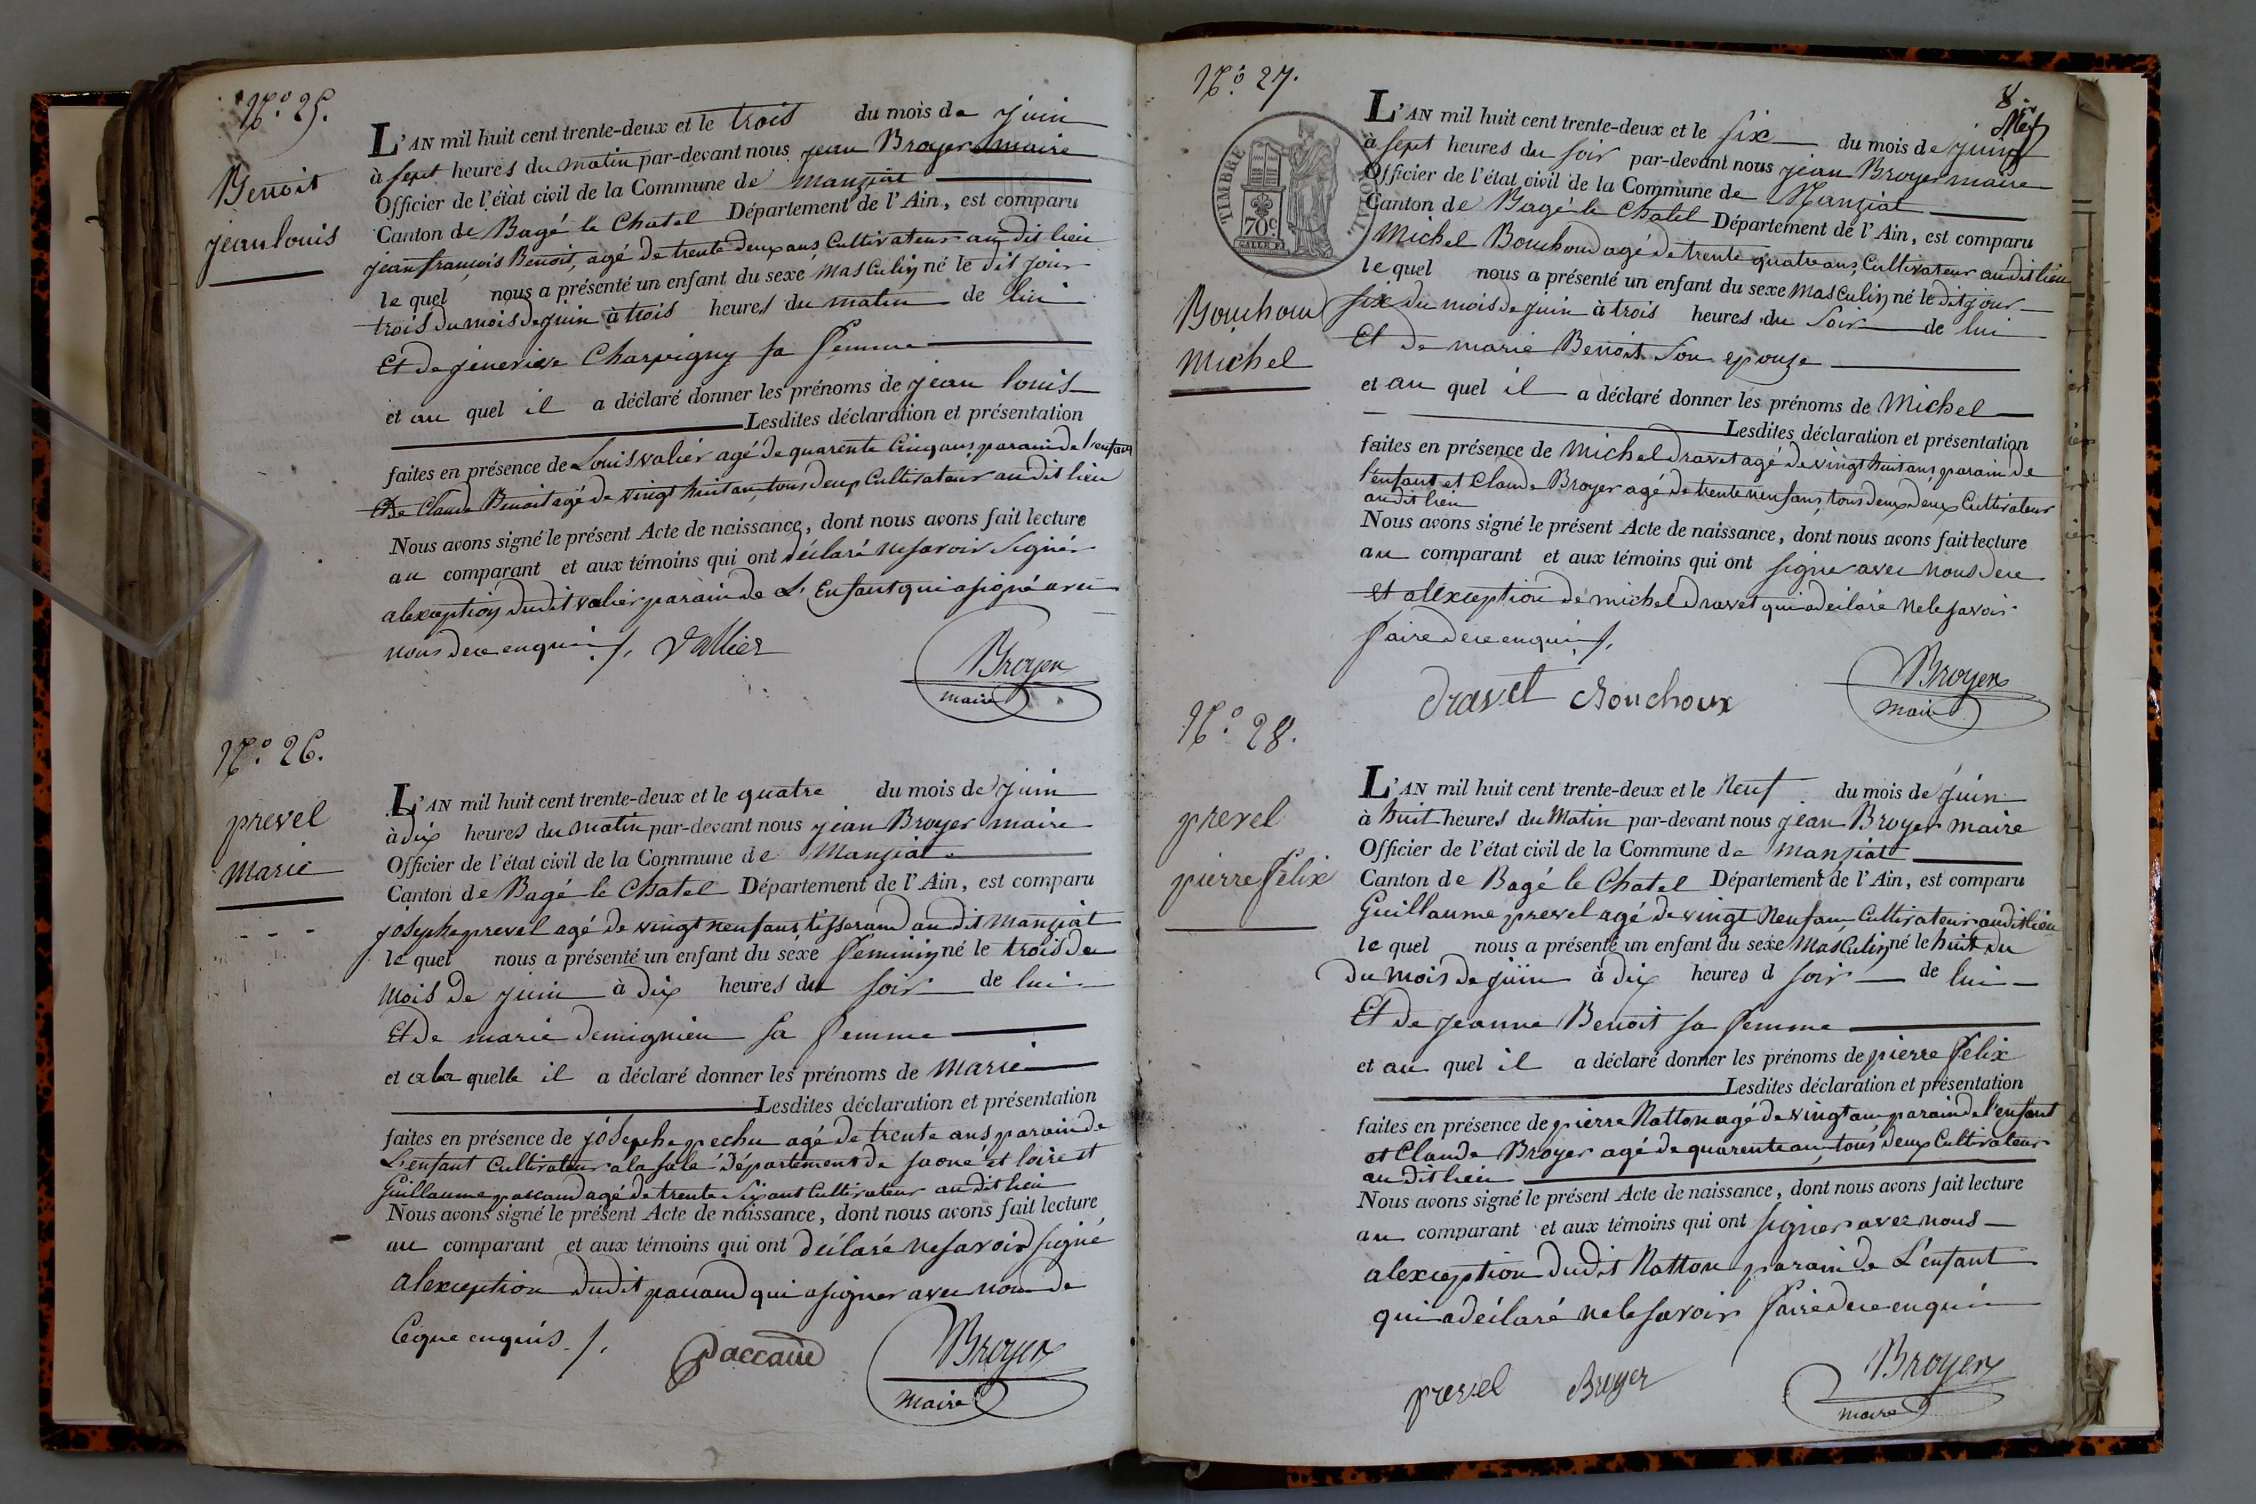 N.o 25.
Benoit
jean louis
L'AN mil huit cent trente-deux et le trois du mois de juin
à sept heures du matin par-devant nous jean Broyer maire
Officier de l'état civil de la Commune de manziat
Canton de Bagé le Chatel Département de l'Ain, est comparu
jean françois Benoit, agé de trente deux ans, Cultivateur au dit lieu
le quel nous a présenté un enfant du sexe masculin né le dit jour
trois du mois de juin à trois heures du matin de lui
et de jenevieve Charvigny sa femme
et au quel il a déclaré donner les prénoms de jean louis
Lesdites déclaration et présentation
faites en présence de Louis valier agé de quarente cinq ans, parain de l'enfant
De Claude Benoit agé de vingt huit ans, tous deux Cultivateur au dit lieu
Nous avons signé le présent Acte de naissance, dont nous avons fait lecture
au comparant et aux témoins qui ont déclaré ne savoir signér
alexception dudit valier parain de L'Enfant qui a signé avec
nous de ce enquis /. Vallier
Broyer
maire
N.o 26.
prevel
marie
L'AN mil huit cent trente-deux et le quatre du mois de juin
à dix heures du matin par-devant nous jean Broyer maire
Officier de l'état civil de la Commune de Manziat
Canton de Bagé le Chatel Département de l'Ain, est comparu
josephe prevel agé de vingt neuf ans tisserand au dit manziat
le quel nous a présenté un enfant du sexe feminin né le trois du
mois de juin à dix heures du soir de lui
et De marie demignieu sa femme
et a la quelle il a déclaré donner les prénoms de marie
Lesdites déclaration et présentation
faites en présence de josephe pechu agé de trente ans parain de
L'enfant Cultivateur a la sale Département de saone et loire et
Guillaume paccaud agé de trente six ans Cultivateur au dit lieu
Nous avons signé le présent Acte de naissance, dont nous avons fait lecture
au comparant et aux témoins qui ont déclaré ne savoir signé
alexception dudit paccaud qui a signer avec nous de
Ce que enquis /.
Paccaud
Broyer
maire
8
N.o 27.
TIMBRE ROYAL
70c
Bouchoud
Michel
L'AN mil huit cent trente-deux et le six du mois de juin
à sept heures du soir par-devant nous jean Broyer maire
Officier de l'état civil de la Commune de Manziat
Canton de Bagé le Chatel Département de l'Ain, est comparu
Michel Bouchoud agé de trente quatre ans, Cultivateur au dit lieu
le quel nous a présenté un enfant du sexe masculin né le dit jour
six du mois de juin à trois heures du soir de lui
Et de marie Benoit son epouze
et au quel il a déclaré donner les prénoms de Michel
Lesdites déclaration et présentation
faites en présence de Michel dravet agé de vingt huit ans parain de
l'enfant et Claude Broyer agé de trente neuf ans, tous deux deux Cultivateur
au dit lieu
Nous avons signé le présent Acte de naissance, dont nous avons fait lecture
au comparant et aux témoins qui ont signer avec nous de ce
et alexception de michel dravet qui a déclaré ne le savoir
faire de ce enquis /.
Dravet Bouchoux
Broyer
maire
N.o 28.
prevel
pierre félix
L'AN mil huit cent trente-deux et le Neuf du mois de juin
à huit heures du Matin par-devant nous jean Broyer maire
Officier de l'état civil de la Commune de manziat
Canton de Bagé le Chatel Département de l'Ain, est comparu
Guillaume prevel agé de vingt neuf ans, Cultivateur au dit lieu
le quel nous a présenté un enfant du sexe masculin né le huit du
du mois de juin à dix heures d soir de lui
Et de jeanne Benoit sa femme
et au quel il a déclaré donner les prénoms de pierre félix
Lesdites déclaration et présentation
faites en présence de pierre Natton agé de vingt ans parain de l'enfant
et Claude Broyer agé de quarente ans, tous deux Cultivateur
au dit lieu
Nous avons signé le présent Acte de naissance, dont nous avons fait lecture
au comparant et aux témoins qui ont signer avec nous
alexception dudit Natton parain de L'enfant
qui a déclaré ne le savoir faire de ce enquis
prevel Broyer
Broyer
maire